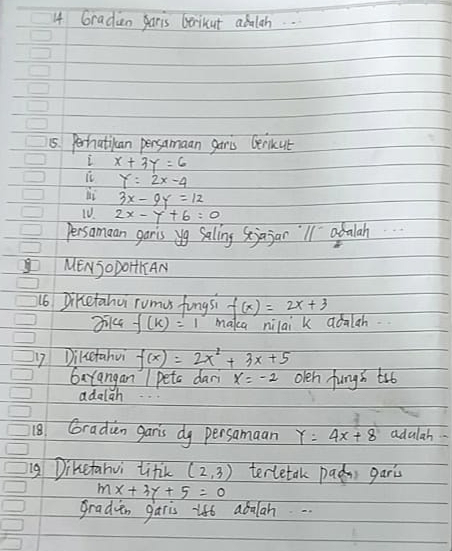 14 Gradien garis berikut adalah ...
15. Perhatikan persamaan garis berikut
i x + 3y = 6
ii y = 2x - 4
iii 3x - 9y = 12
iv. 2x - y + 6 = 0
Persamaan garis yg saling sejajar "//" adalah ...
MENJODOHKAN
16 Diketahui rumus fungsi f(x) = 2x + 3
Jika f(k) = 1 maka nilai k adalah ..
17 Diketahui f(x) = 2x² + 3x + 5
bayangan / peta dari x = -2 oleh fungsi tsb
adalah ...
18 Gradien garis dg persamaan y = 4x + 8 adalah -
19 Diketahui titik (2,3) terletak pada garis
mx + 3y + 5 = 0
gradien garis tsb adalah ...